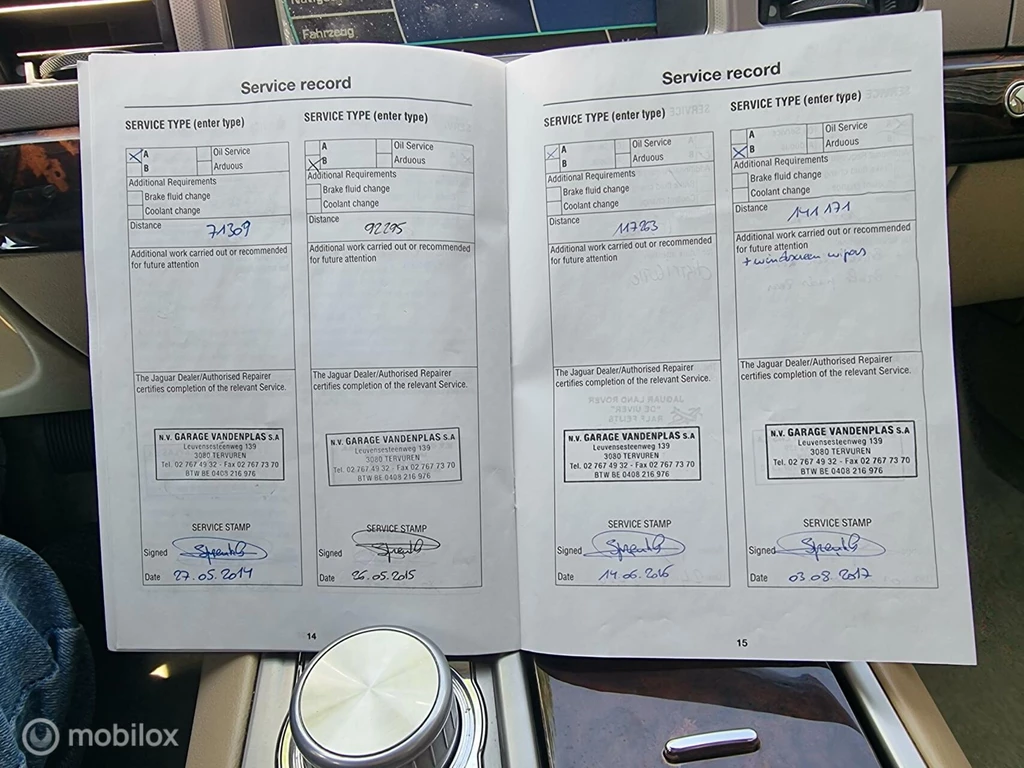 Fahrzeug
Service record
SERVICE TYPE (enter type)
A
B
Oil Service
Arduous
Additional Requirements
Brake fluid change
Coolant change
Distance
71309
Additional work carried out or recommended
for future attention
The Jaguar Dealer/Authorised Repairer
certifies completion of the relevant Service.
N.V. GARAGE VANDENPLAS S.A
Leuvensesteenweg 139
3080 TERVUREN
Tel. 02 767 49 32 - Fax 02 767 73 70
BTW BE 0408 216 976
SERVICE STAMP
Signed
Date 27.05.2014
SERVICE TYPE (enter type)
A
B
Oil Service
Arduous
Additional Requirements
Brake fluid change
Coolant change
Distance
92295
Additional work carried out or recommended
for future attention
The Jaguar Dealer/Authorised Repairer
certifies completion of the relevant Service.
N.V. GARAGE VANDENPLAS S.A
Leuvensesteenweg 139
3080 TERVUREN
Tel. 02 767 49 32 - Fax 02 767 73 70
BTW BE 0408 216 976
SERVICE STAMP
Signed
Date 26.05.2015
14
Service record
SERVICE TYPE (enter type)
A
B
Oil Service
Arduous
Additional Requirements
Brake fluid change
Coolant change
Distance
117263
Additional work carried out or recommended
for future attention
The Jaguar Dealer/Authorised Repairer
certifies completion of the relevant Service.
N.V. GARAGE VANDENPLAS S.A
Leuvensesteenweg 139
3080 TERVUREN
Tel. 02 767 49 32 - Fax 02 767 73 70
BTW BE 0408 216 976
SERVICE STAMP
Signed
Date 14.06.2016
SERVICE TYPE (enter type)
A
B
Oil Service
Arduous
Additional Requirements
Brake fluid change
Coolant change
Distance
141171
Additional work carried out or recommended
for future attention
+ windscreen wipers
The Jaguar Dealer/Authorised Repairer
certifies completion of the relevant Service.
N.V. GARAGE VANDENPLAS S.A
Leuvensesteenweg 139
3080 TERVUREN
Tel. 02 767 49 32 - Fax 02 767 73 70
BTW BE 0408 216 976
SERVICE STAMP
Signed
Date 03.08.2017
15
mobilox